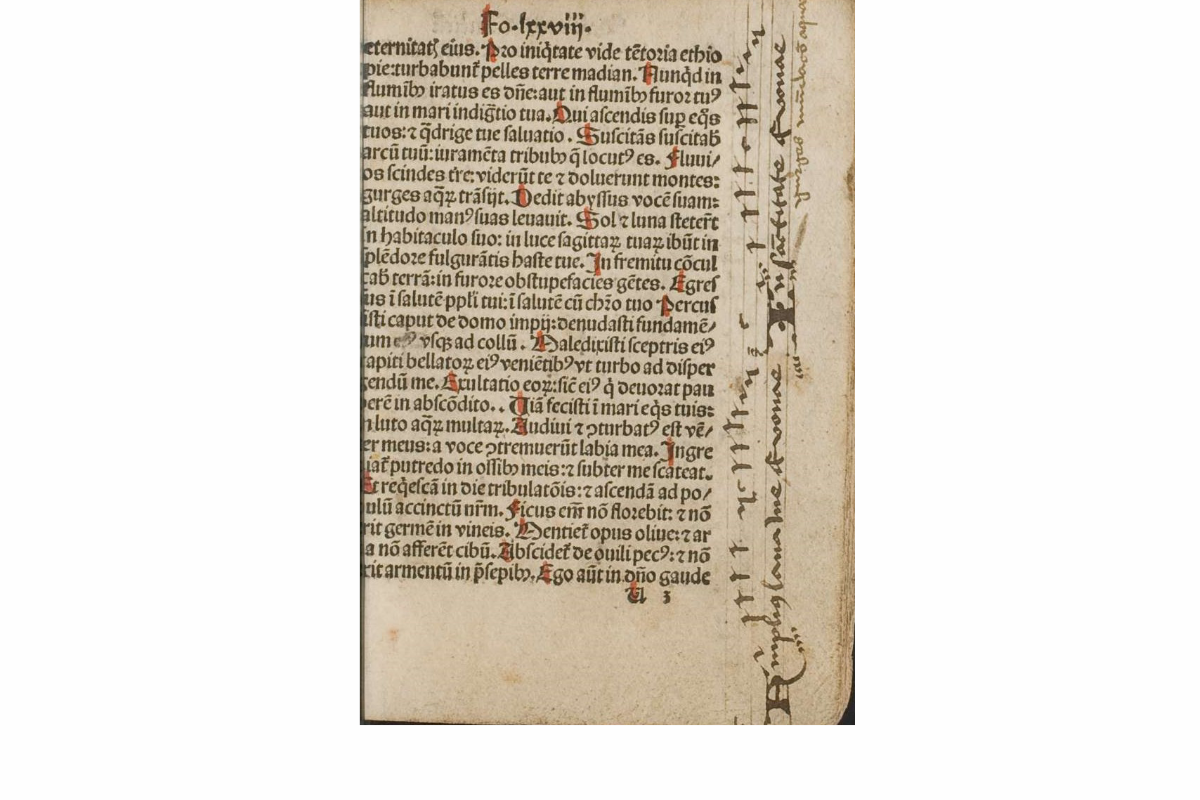 Fo.lxxviij.
eternitatꝭ eius. Pro iniq̃tate vide tẽtoria ethio
pie: turbabunt̃ pelles terre madian. Nunqᷘd in
fluminibꝫ iratus es dñe: aut in fluminibꝫ furor tuꝰ
aut in mari indig̃tio tua. Qui ascendis sup eq̃s
tuos: ⁊ q̃drige tue saluatio. Suscitãs suscitab̃
arcũ tuũ: iuramẽta tribubꝫ q̃ locutꝰ es. Fluui/
os scindes tr̃e: viderũt te ⁊ doluerunt montes:
gurges aq̃ꝝ trãsijt. Dedit abyssus vocẽ suam:
altitudo manꝰ suas leuauit. Sol ⁊ luna steter̃t
in habitaculo suo: in luce sagittaꝝ tuaꝝ ibũt in
splẽdore fulgurãtis haste tue. In fremitu cõcul
cab̃ terrã: in furore obstupefacies gẽtes. Egres
sus ĩ salutẽ ppl̃i tui: ĩ salutẽ cũ chr̃o tuo Percus
isti caput de domo impij: denudasti fundamẽ/
um eiꝰ vsqꝫ ad collũ. Maledixisti sceptris eiꝰ
capiti bellatoꝝ eiꝰ veniẽtibꝰ vt turbo ad disper
gendũ me. Exultatio eoꝝ: sic̃ eiꝰ q̃ deuorat pau
perẽ in abscõdito.. Uiã fecisti ĩ mari eq̃s tuis:
n luto aq̃ꝝ multaꝝ. Audiui ⁊ ꝯturbatꝰ est vẽ/
er meus: a voce ꝯtremuerũt labia mea. Ingre
iat̃ putredo in ossibꝫ meis: ⁊ subter me scateat.
Et req̃escã in die tribulatõis: ⁊ ascendã ad po/
ulũ accinctũ nr̃m. Ficus em̃ nõ florebit: ⁊ nõ
rit germẽ in vineis. Mentiet̃ opus oliue: ⁊ ar
a nõ afferẽt cibũ. Abscidet̃ de ouili pecꝰ: ⁊ nõ
rit armentũ in p̃sepibꝫ. Ego aũt in dño gaude
U 3
Amplius laua me et donae
In sãctitate et donae